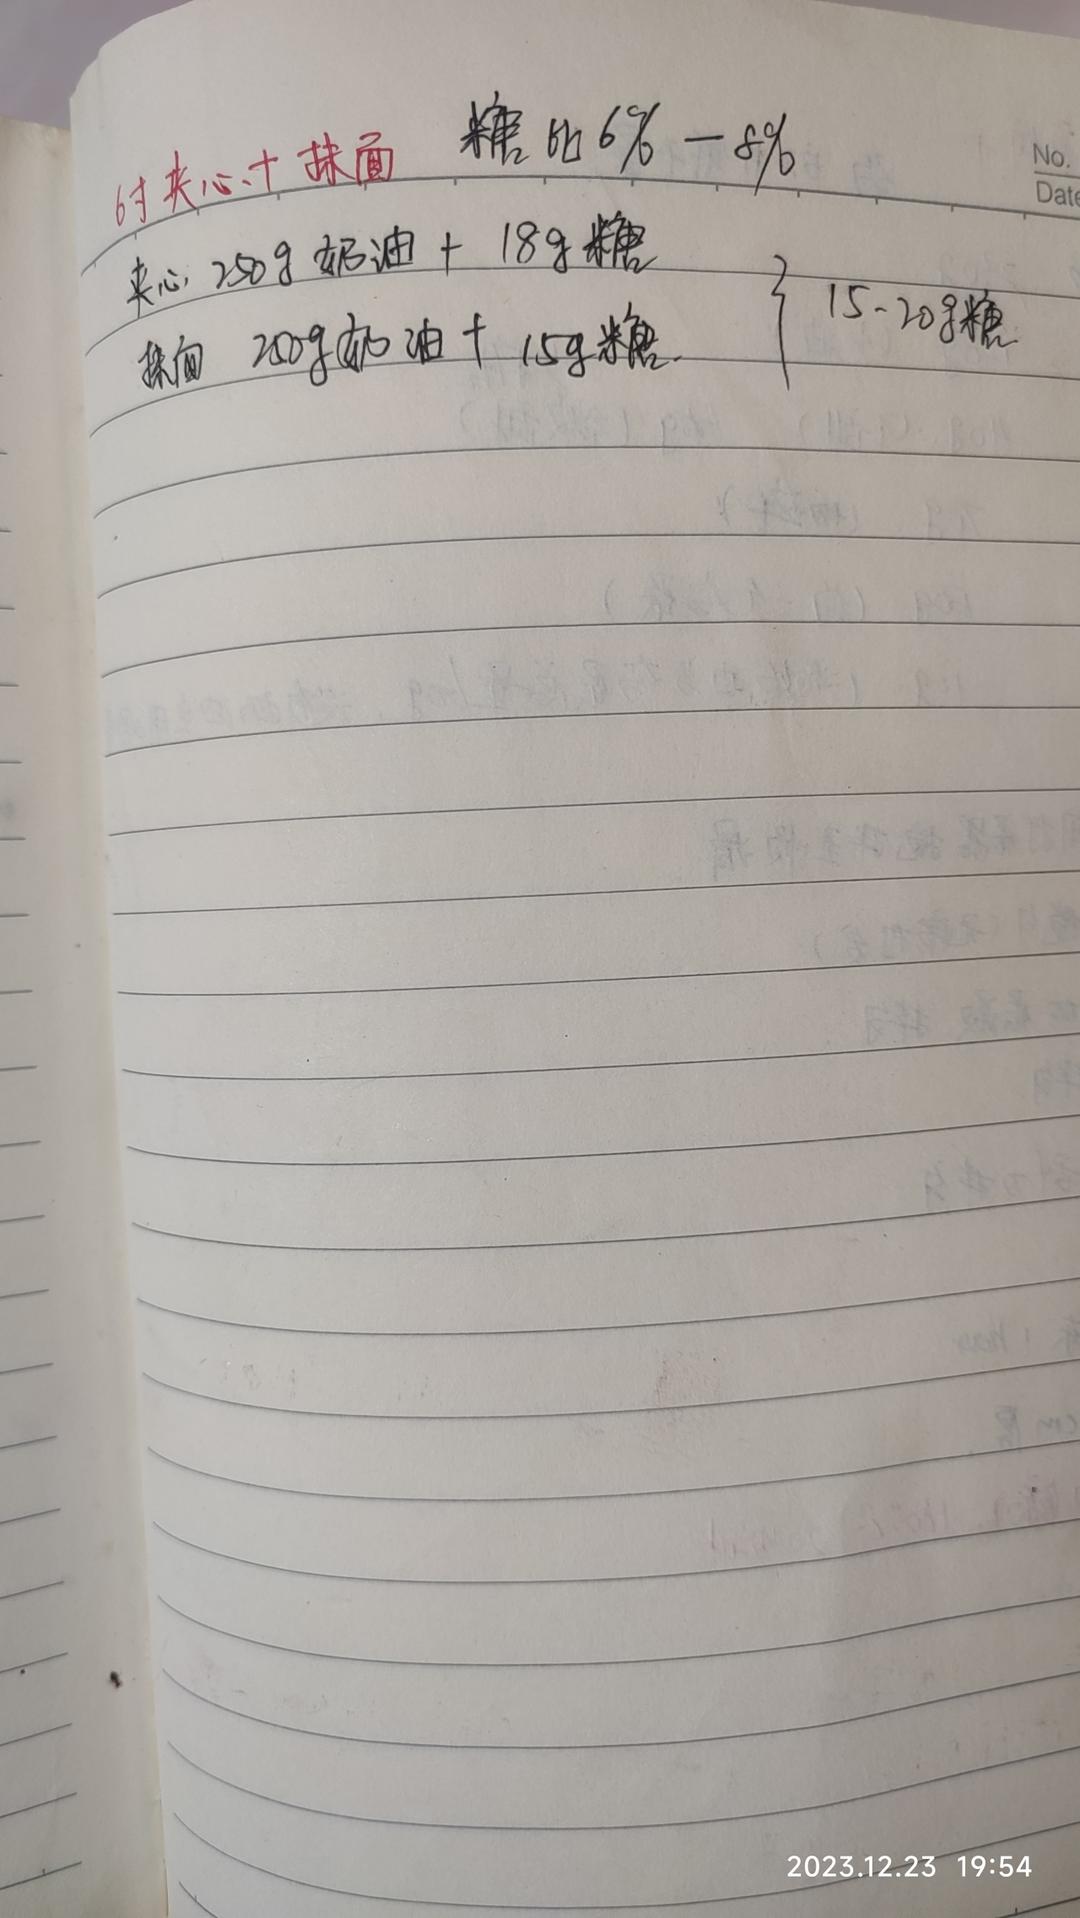 6寸夹心+抹面 糖的6%-8%
No.
Date
夹心 250g奶油+18g糖
抹面 250g奶油+15g糖
15-20g糖
2023.12.23 19:54